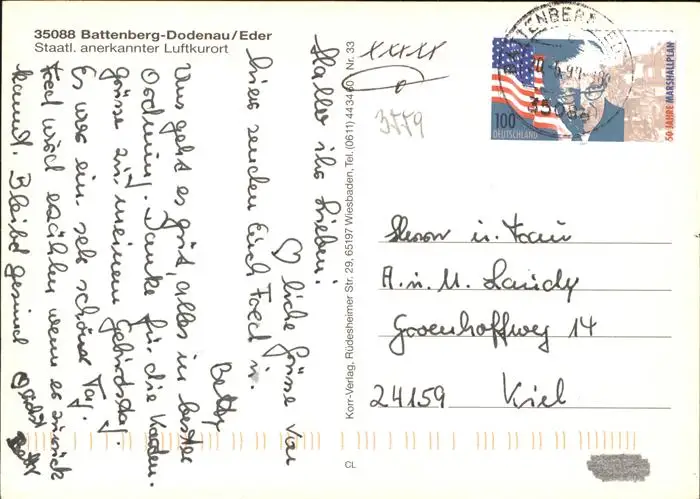 35088 Battenberg-Dodenau/Eder
Staatl. anerkannter Luftkurort
Hallo ihr Lieben!
♡ liche Grüsse von
hier senden Euch Fred u.
Betty
Uns geht es gut, alles in bester
Ordnung. Danke für die Karten.
Grüsse zu meinem Geburtstag.
Es war ein sehr schöner Tag!
Fred wird erzählen wenn er zurück
kommt. Bleibt gesund
Betty
Korr-Verlag, Rüdesheimer Str. 29, 65197 Wiesbaden, Tel. (0611) 443400 Nr. 33
3779
35088
100
DEUTSCHLAND
50 JAHRE MARSHALLPLAN
Herrn u. Frau
A. u. M. Landy
Gravenhoffweg 14
24159 Kiel
CL